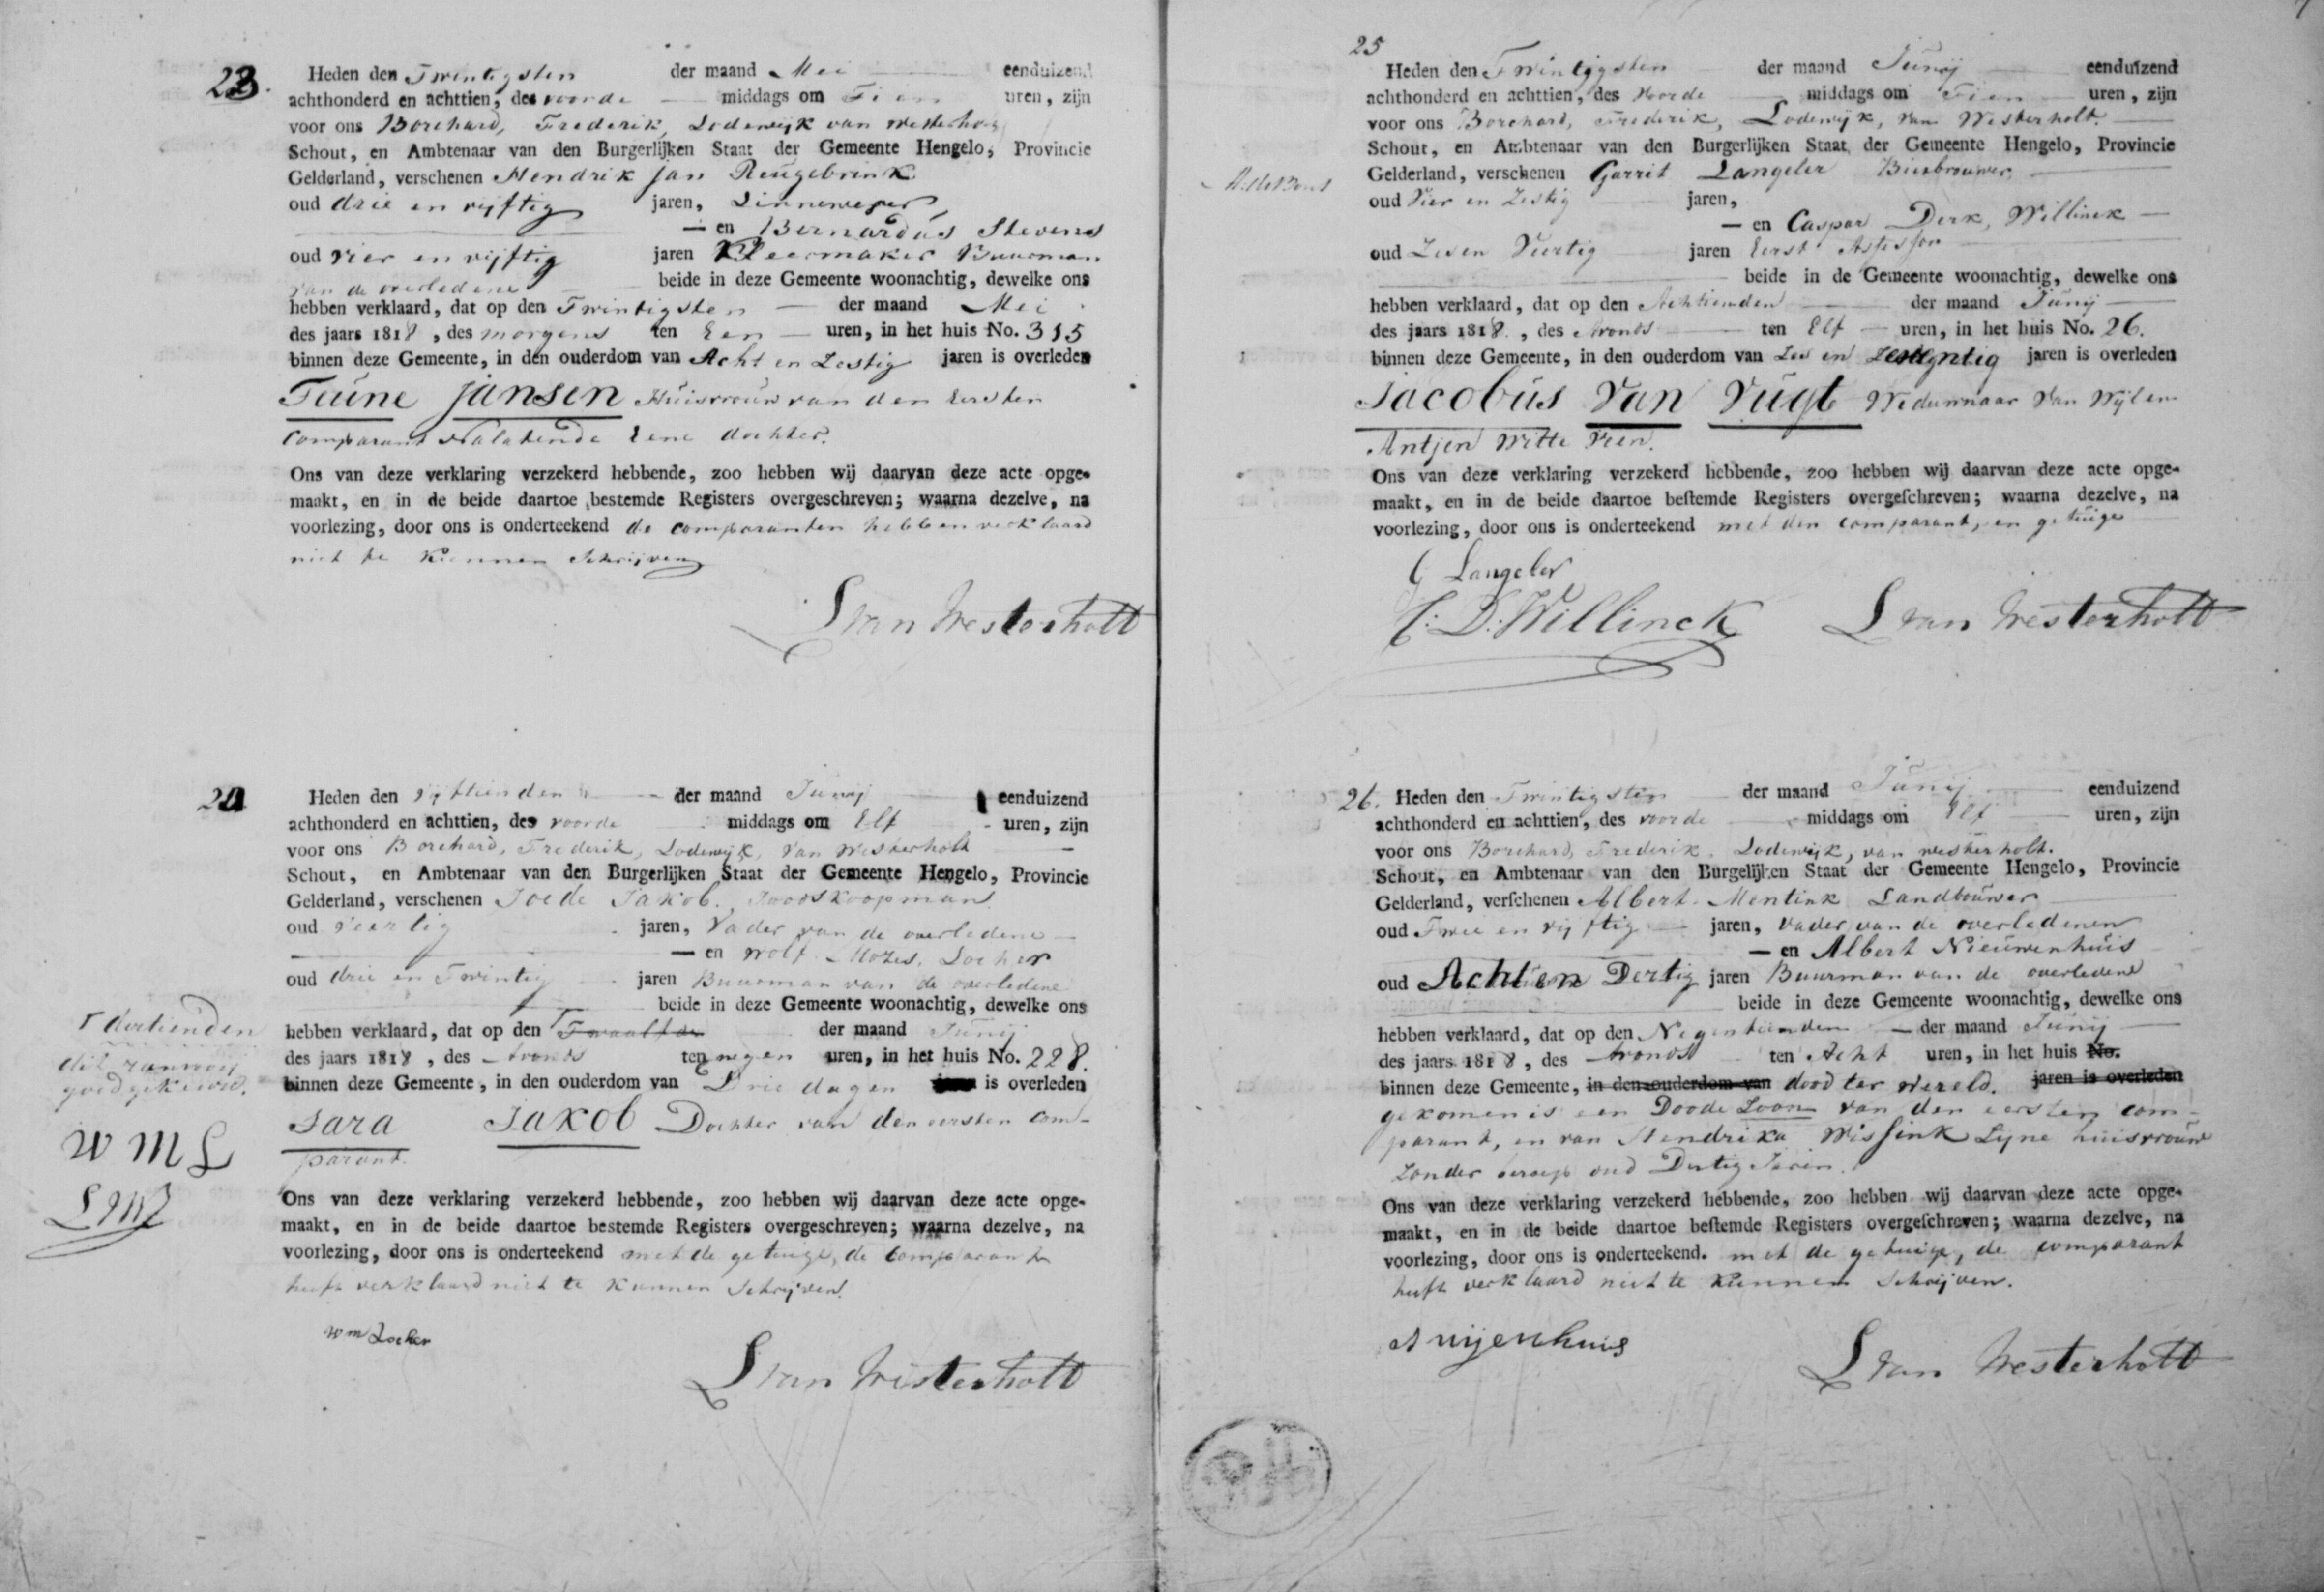 23.
Heden den Twintigsten der maand Mei eenduizend
achthonderd en achttien, des voorde middags om Tien uren, zijn
voor ons Borchard, Frederik, Lodewijk van Westerholt
Schout, en Ambtenaar van den Burgerlijken Staat der Gemeente Hengelo, Provincie
Gelderland, verschenen Hendrik Jan Reugebrink
oud drie en vyftig jaren, Linnewever,
— en Bernardus Stevens
oud vier en vijftig jaren Kleermaker Buurman
van de overledene beide in deze Gemeente woonachtig, dewelke ons
hebben verklaard, dat op den Twintigsten — der maand Mei
des jaars 1818, des morgens ten Een — uren, in het huis No. 315
binnen deze Gemeente, in den ouderdom van Acht en Zestig jaren is overleden
Teune Jansen Huisvrouw van den Eersten
Comparant Nalatende Eene dochter.
Ons van deze verklaring verzekerd hebbende, zoo hebben wij daarvan deze acte opge-
maakt, en in de beide daartoe bestemde Registers overgeschreven; waarna dezelve, na
voorlezing, door ons is onderteekend de comparanten hebben verklaard
niet te Kunnen Schrijven
L van Westerholt
24
Heden den vyftienden — der maand Junij eenduizend
achthonderd en achttien, des voorde middags om Elf - uren, zijn
voor ons Borchard, Frederik, Lodewijk, van Westerholt —
Schout, en Ambtenaar van den Burgerlijken Staat der Gemeente Hengelo, Provincie
Gelderland, verschenen Joede Jakob. Joodskoopman
oud veertig jaren, Vader van de overledene —
— en Wolf Mozes. Locher
oud drie en Twintig jaren Buurman van de overledene
beide in deze Gemeente woonachtig, dewelke ons
hebben verklaard, dat op den Twaalfden der maand Junij
des jaars 1818, des Avonds ten negen uren, in het huis No. 228.
binnen deze Gemeente, in den ouderdom van Drie dagen is overleden
Sara Jakob Dochter van den eersten Com-
parant.
Ons van deze verklaring verzekerd hebbende, zoo hebben wij daarvan deze acte opge-
maakt, en in de beide daartoe bestemde Registers overgeschreven; waarna dezelve, na
voorlezing, door ons is onderteekend met de getuige, de Comparant
heeft verklaard niet te Kunnen Schrijven.
wm Locher
L van Westerholt
dertienden
goedgekeurd.
W M L
25
Heden den Twintigsten der maand Junij eenduizend
achthonderd en achttien, des voorde middags om Tien uren, zijn
voor ons Borchard, Frederik, Lodewijk, van Westerholt. —
Schout, en Ambtenaar van den Burgerlijken Staat der Gemeente Hengelo, Provincie
Gelderland, verschenen Garrit Langeler Bierbrouwer, —
oud Vier en Zestig jaren,
— en Caspar Derk, Willinck —
oud Zes en Veertig jaren Eerst Assessor
beide in de Gemeente woonachtig, dewelke ons
hebben verklaard, dat op den Achtienden der maand Junij —
des jaars 1818., des Avonds — ten Elf — uren, in het huis No. 26.
binnen deze Gemeente, in den ouderdom van Zes en Zeventig jaren is overleden
Jacobus Van Vugt Weduwnaar Van Wijlen
Antjen Witte Veen.
Ons van deze verklaring verzekerd hebbende, zoo hebben wij daarvan deze acte opge-
maakt, en in de beide daartoe bestemde Registers overgeschreven; waarna dezelve, na
voorlezing, door ons is onderteekend met den comparant, en getuige
G Langeler
C: D: Willinck L van Westerholt
26.
Heden den Twintigsten der maand Junij — eenduizend
achthonderd en achttien, des voorde middags om Elf uren, zijn
voor ons Borchard, Frederik. Lodewijk, van Westerholt.
Schout, en Ambtenaar van den Burgelijken Staat der Gemeente Hengelo, Provincie
Gelderland, verschenen Albert. Mentink Landbouwer
oud Twee en vijftig — jaren, vader van de overledenen
— en Albert Nieuwenhuis
oud Acht en Dertig jaren Buurman van de overledene
beide in deze Gemeente woonachtig, dewelke ons
hebben verklaard, dat op den Negentienden — der maand Junij
des jaars 1818, des Avonds ten Acht uren, in het huis No.
binnen deze Gemeente, in den ouderdom van dood ter wereld. jaren is overleden
gekomen is een Doode Zoon van den eersten com-
parant, en van Hendrika Wissink Zijne huisvrouw
zonder beroep oud Dertig Jaren.
Ons van deze verklaring verzekerd hebbende, zoo hebben wij daarvan deze acte opge-
maakt, en in de beide daartoe bestemde Registers overgeschreven; waarna dezelve, na
voorlezing, door ons is onderteekend. met de getuige, de comparant
heeft verklaard niet te Kunnen Schrijven.
A nijenhuis
L van Westerholt